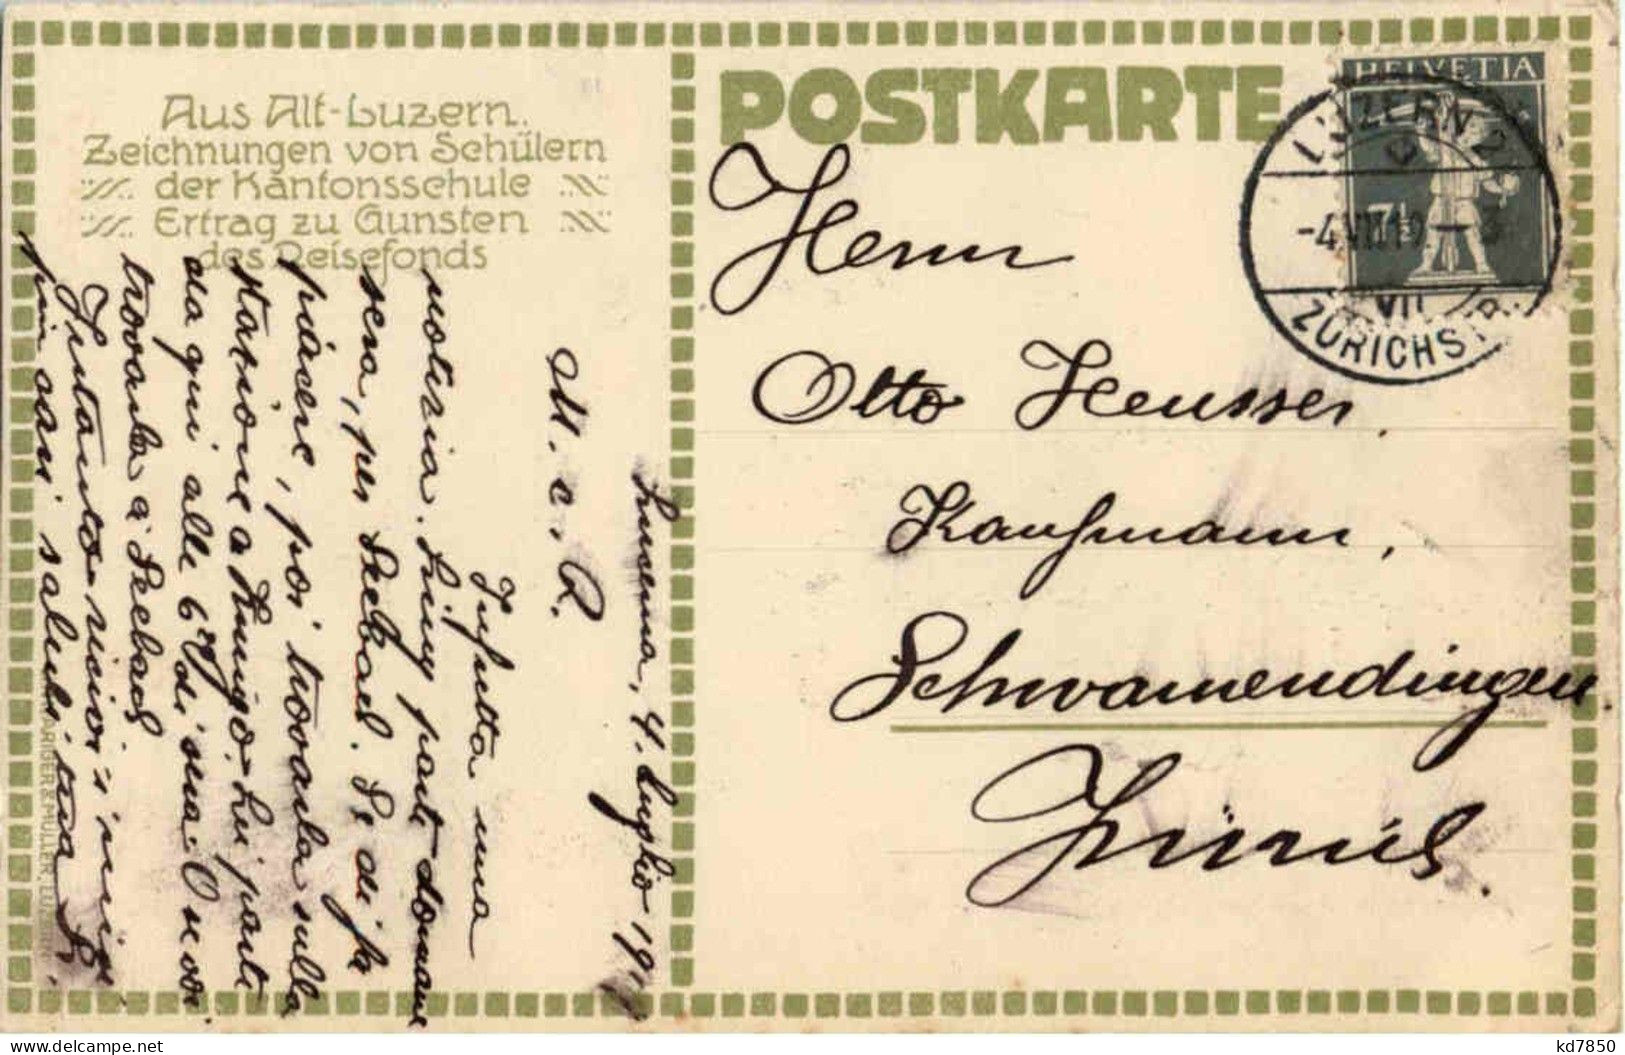 Aus Alt-Luzern.
Zeichnungen von Schülern
der Kantonsschule
Ertrag zu Gunsten
des Reisefonds
POSTKARTE
HELVETIA
7½
LUZERN 2
-4.VII.19
VII
ZÜRICHSTR.
Herrn
Otto Heusser,
Kaufmann,
Schwamendingen
Zürich.
Lucerna, 4. Luglio 19
M. c. O.
In fretta una
notizia. Lüny parte domane
sera, per Seebach. Se di fa
piacere, poi trovarla sulla
statione a Lei parte
da qui alle 6 di sera. O se
trovarla a Seebach
Intanto
più cari saluti tua
MÜLLER, LUZERN
kd7850